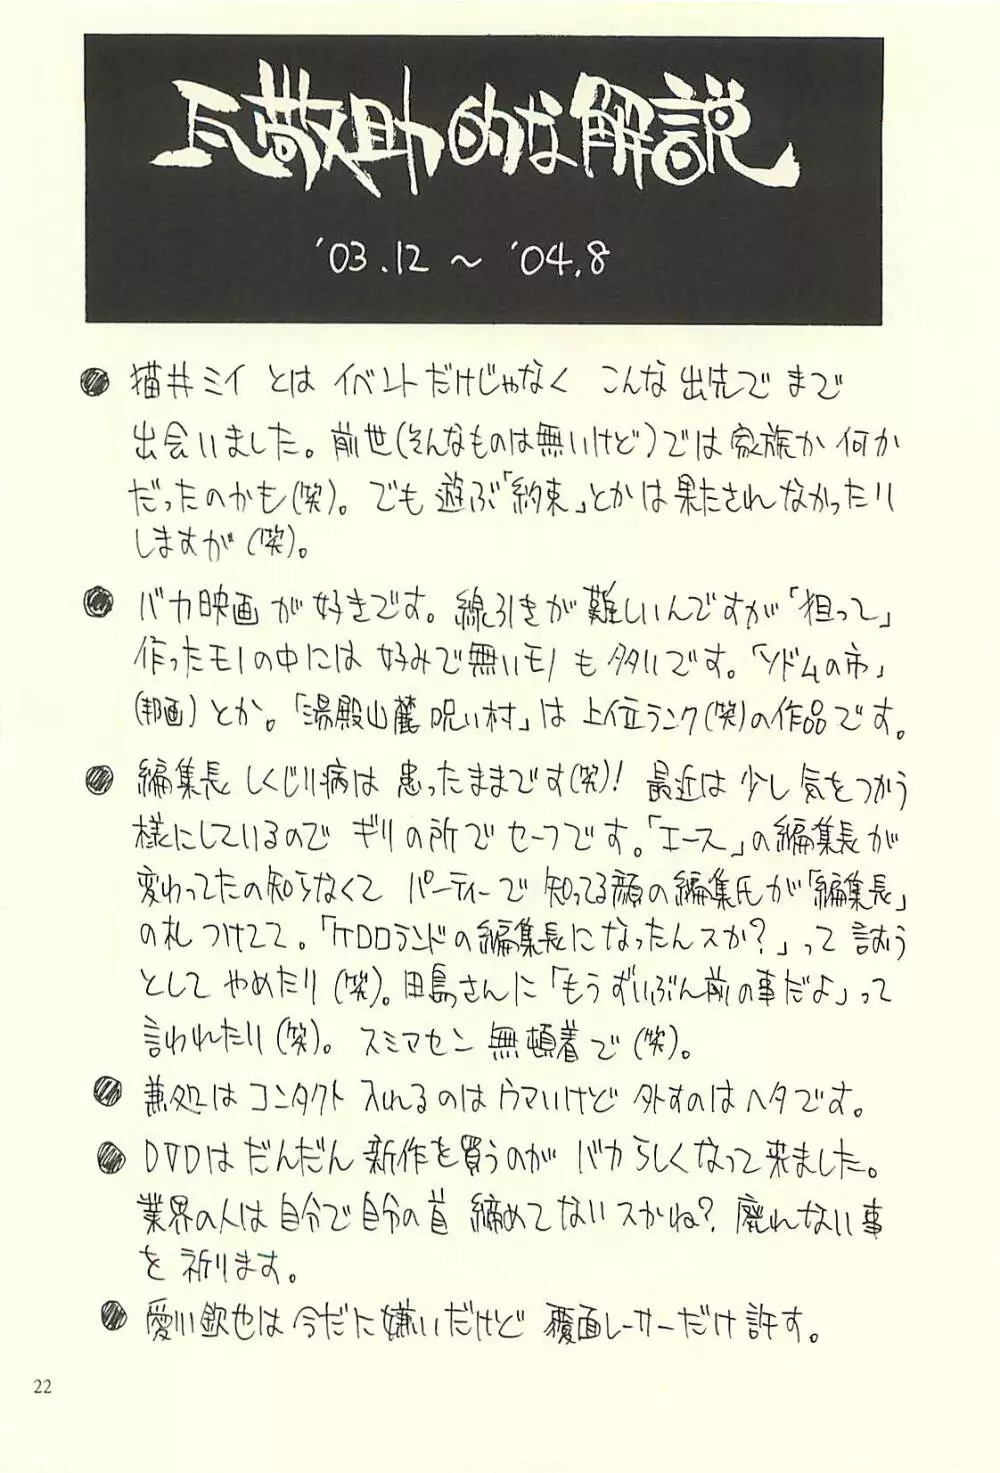 瓦敬助的な解説
'03.12 ～ '04.8
● 猫井ミイ とは イベントだけじゃなく こんな 出先で まで
出会いました。前世(そんなものは無いけど)では 家族か 何か
だったのかも(笑)。でも 遊ぶ「約束」とかは 果たされなかったり
しますが(笑)。
● バカ映画 が 好きです。線引きが 難しいんですが「狙って」
作ったモノの中には 好みで無いモノ も 多いです。「ソドムの市」
(邦画)とか。「湯殿山麓 呪い村」は 上位ランク(笑)の作品です。
● 編集長 しくじり病は 患ったままです(笑)! 最近は 少し 気をつかう
様にしているので ギリの所で セーフです。「エース」の編集長が
変わってたの知らなくて パーティーで 知ってる顔の編集氏が「編集長」
の札 つけてて。「ケロロランドの編集長になったんスか?」って 言おう
として やめたり(笑)。田島さんに「もうずいぶん前の事だよ」って
言われたり(笑)。スミマセン 無頓着で(笑)。
● 兼処は コンタクト 入れるのは ウマいけど 外すのは ヘタです。
● DVDは だんだん 新作を買うのが バカらしくなって 来ました。
業界の人は 自分で 自分の首 締めてないスかね? 廃れない事
を 祈ります。
● 愛川欽也は 今だに 嫌いだけど 覆面レーサーだけ 許す。
22